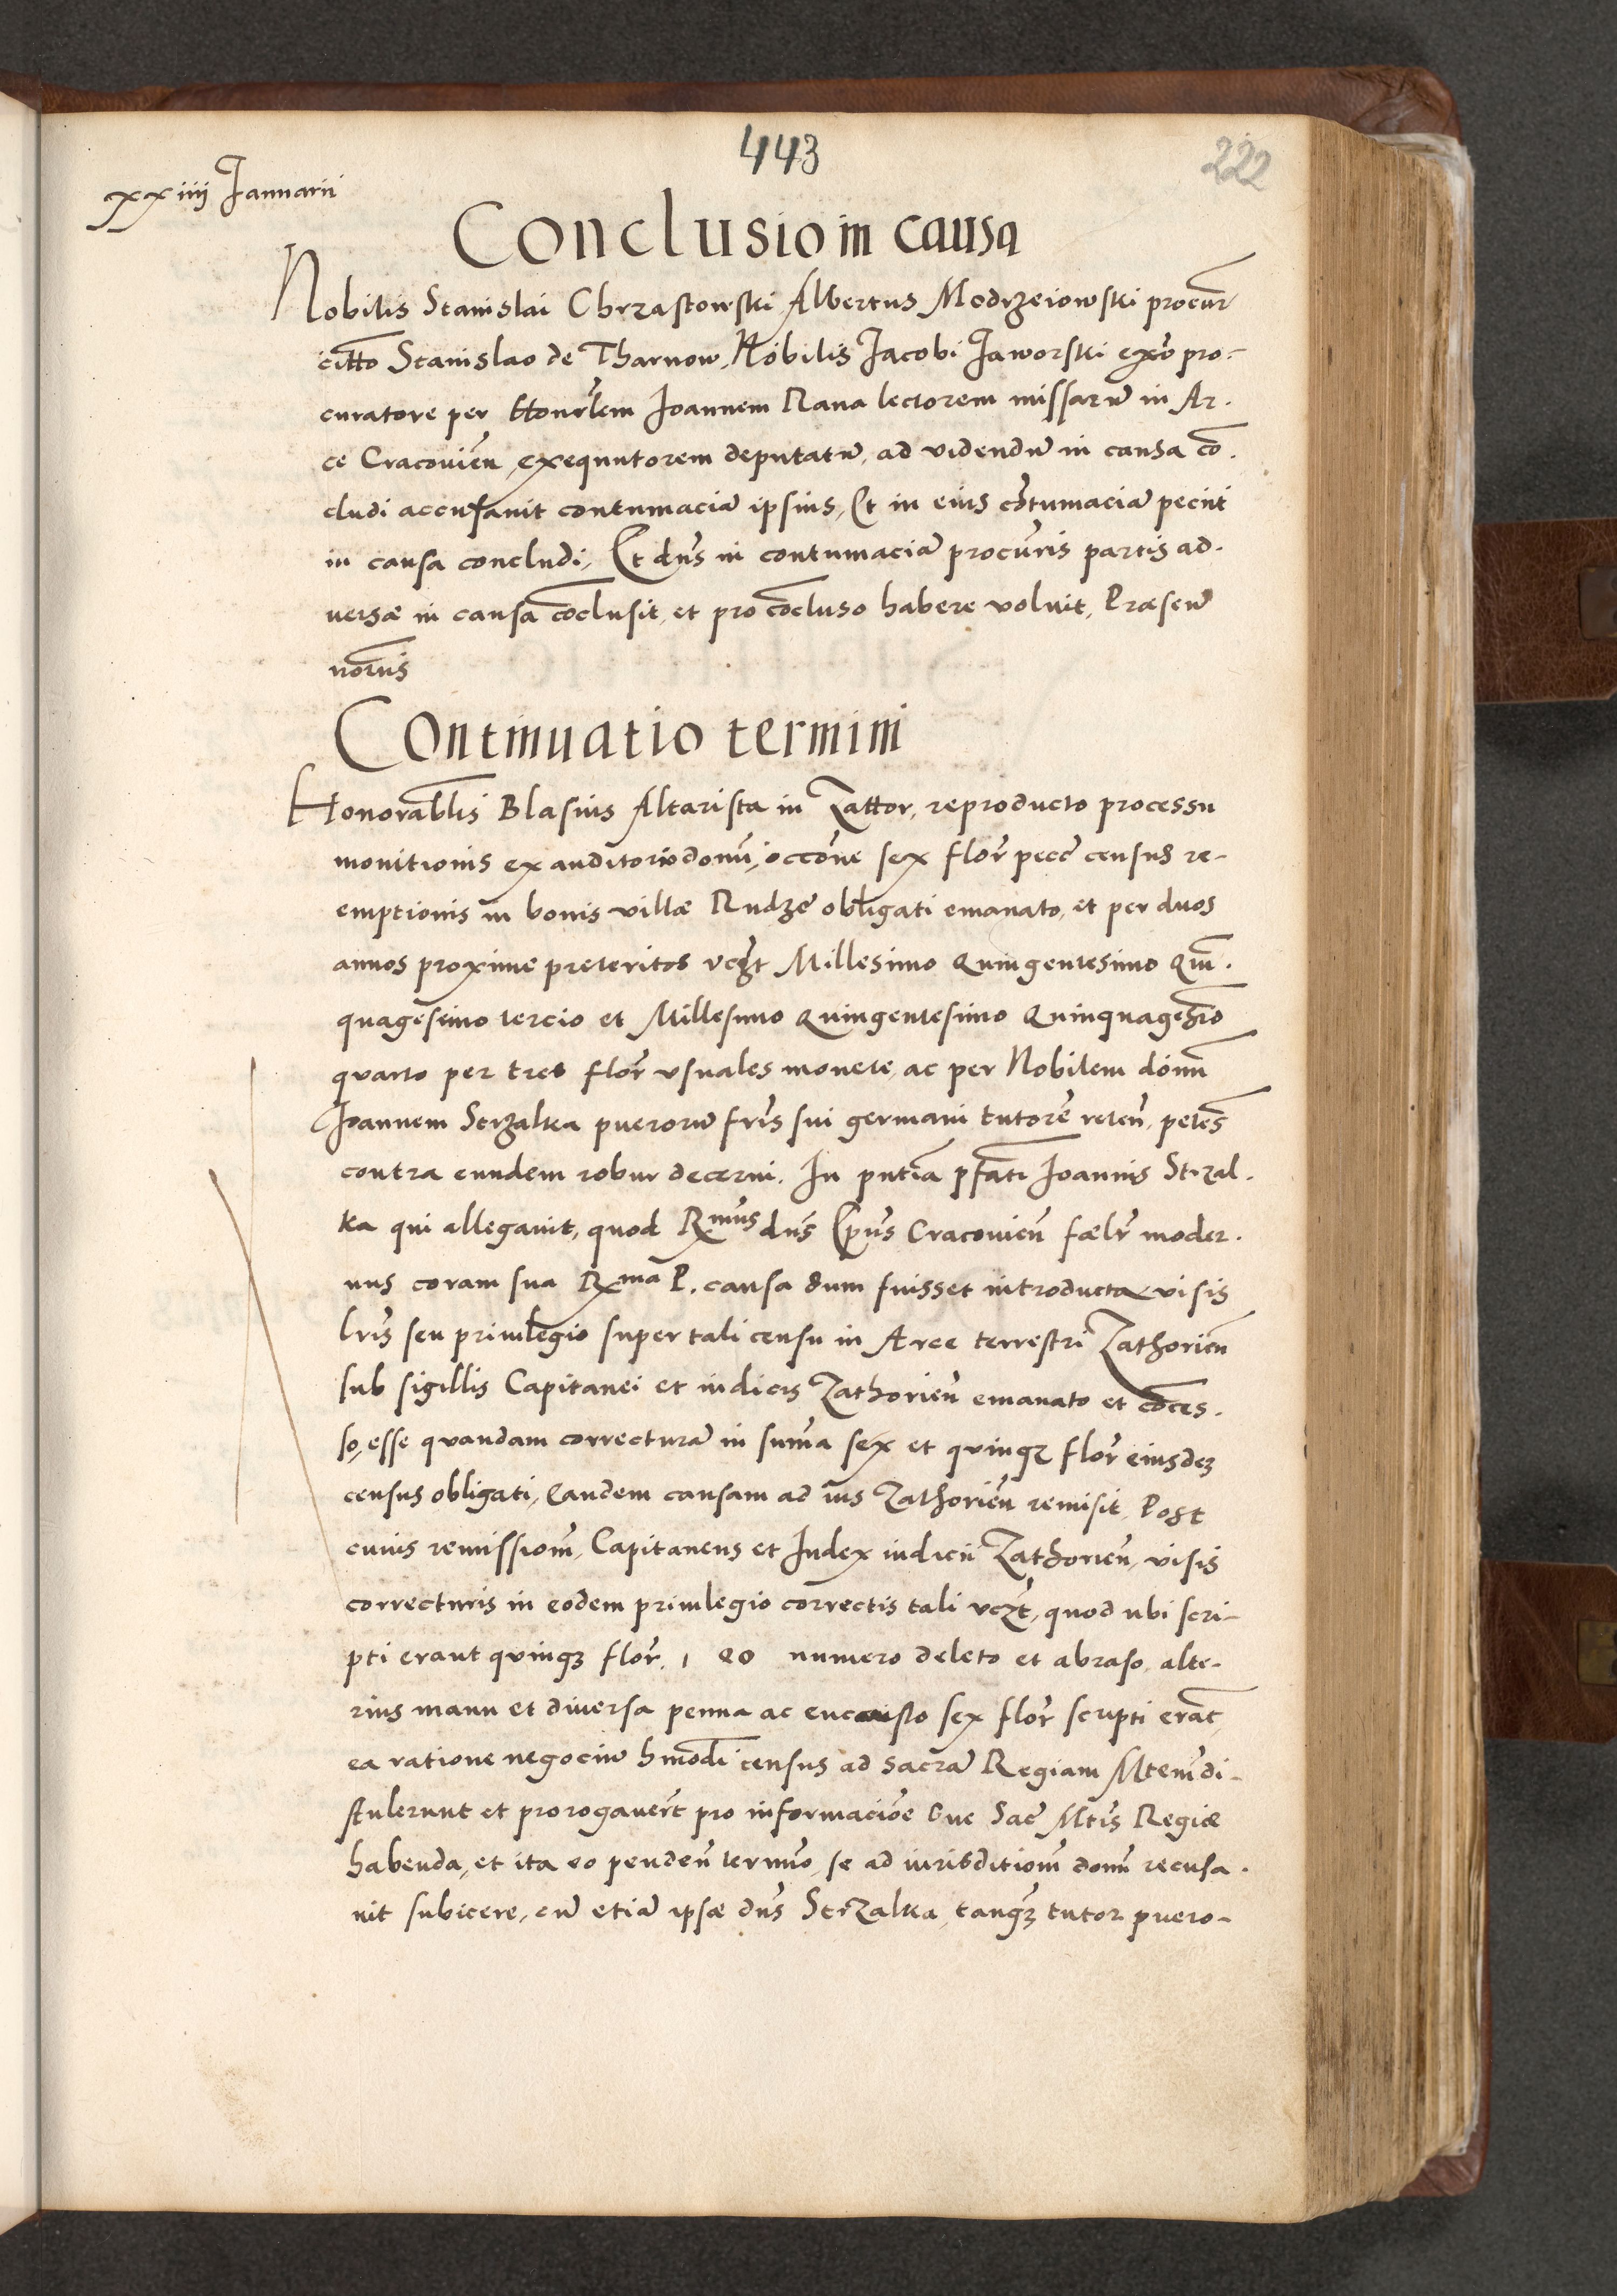 443
222
xxiiij Januarii
Conclusio in causa
Nobilis Stanislai Chrzastowski Albertus Modrzeiowski procur̃
citto Stanislao de Tharnow, Nobilis Jacobi Jaworski ex̃o pro-
curatore per Honor̃lem Joannem Rana lectorem missarũ in Ar-
ce Cracovień, exequutorem deputatũ, ad videndũ in causa cõ-
cludi accusauit contumaciã ipsius, Et in eius cõtumaciã peciit
in causa concludi, Et dñs in contumaciã procuris partis ad-
uersæ in causa cõclusit, et pro cõcluso habere voluit, Præsen̄
notariis
Continuatio termini
Honorablis Blasius Altarista in Zattor, reproducto processu
monitionis ex auditorio domĩ, occõne sex flor̃ pecc̃ census re-
emptionis in bonis villæ Rudze obligati emanato, et per duos
annos proxime preteritos vcz̃t Millesimo Quingentesimo Quĩ-
quagesimo tercio et Millesimo Quingentesimo Quinquages̃io
quarto per tres flor̃ vsuales monete, ac per Nobilem domĩ
Joannem Strzalka puerorũ fr̃is sui germani tutorẽ reteñ, petẽs
contra eundem robur decerni. In pñtiã pfati Joannis Strzal-
ka qui allegauit, quod Rx̃mus dñs Ep̃us Cracovień fœlr̃ moder-
nus coram sua Rx̃ma P. causa dum fuisset introducta visis
lr̃is seu priuilegio super tali censu in Arce terrestri Zathorień
sub sigillis Capitanei et iudicis Zathorień emanato et cõces-
so, esse quandam correcturã in sum̃a sex et quinqʒ flor̃ eiusdeʒ
census obligati, Eandem causam ad ius Zathorień remisit, Post
cuius remissionẽ, Capitaneus et Iudex iudicii Zathorień, visis
correcturis in eodem priuilegio correctis tali vcz̃t, quod ubi scri-
pti erant quinqʒ flor̃, eo numero deleto et abraso, alte-
rius manu et diuersa penna ac encausto sex flor̃ scripti erãt,
ea ratione negociũ hmõdi census ad sacrã Regiam Mtem̃ di-
stulerunt et prorogauer̃t pro informaciõe Sac̃ Mtis̃ Regiæ
habenda, et ita eo pendeñ termĩo, se ad iurisditionẽ domĩ recusa-
uit subicere, cũ etiã ipsæ dñs Strzalka, tanqʒ tutor puero-